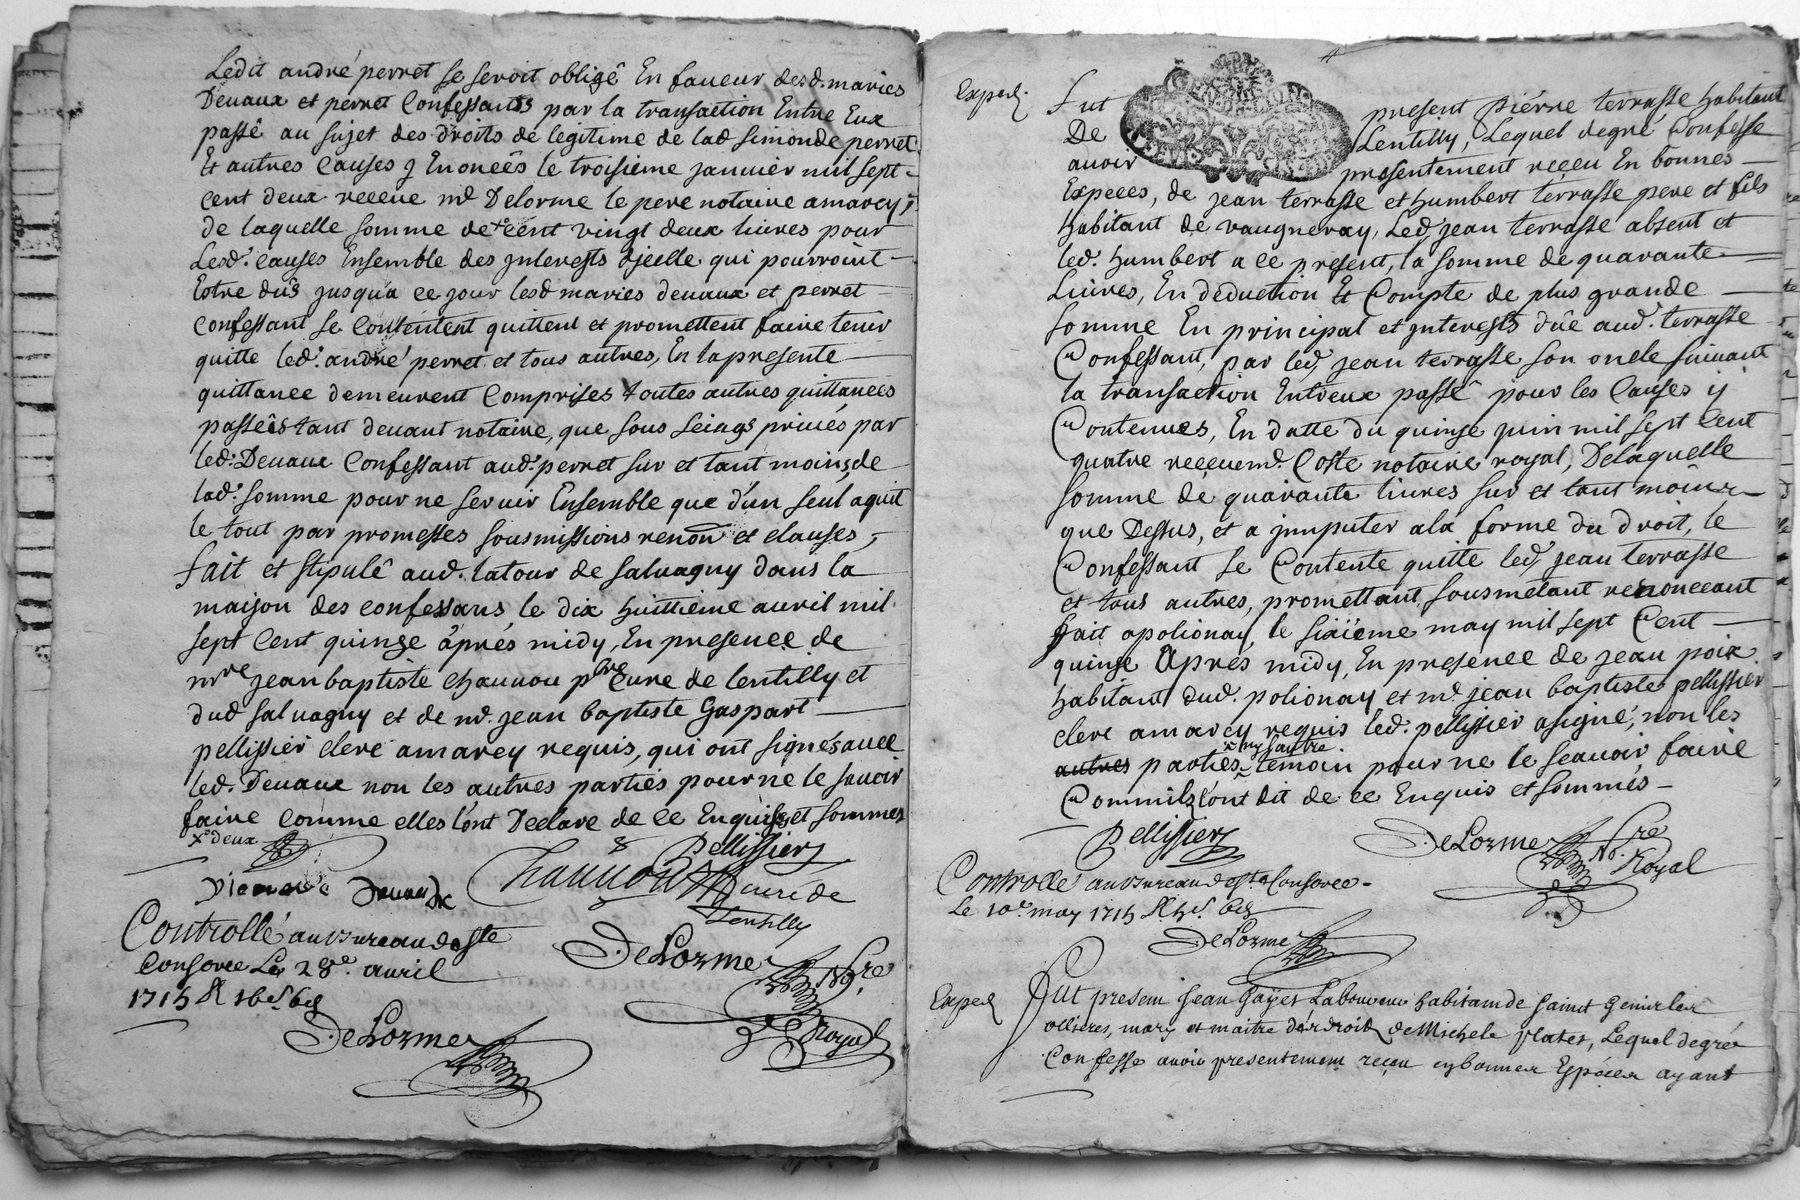 Ledit andré perret se seroit obligé En faveur desd. mariés
Devaux et perret Confessants par la transaction Entre Eux
passé au sujet des droits de legitime de lad simonde perret
Et autres Causes y Enoncés le troisieme janvier mil sept
cent deux receue me Delorme le pere notaire amarcy,
de laquelle somme de cent vingt deux livres pour
Lesd. causes Ensemble des jnterests djcelle qui pourroint
Estre dus jusqua ce jour lesd mariés devaux et perret
confessant se Contentent quittent et promettent faire tenir
quitte led. andré perret et tous autres, En lapresente
quittance demeurent Comprises toutes autres quittances
passées tant devant notaire, que sous seings privés par
led. Devaux Confessant aud. perret sur et tant moins de
lad. somme pour ne servir Ensemble que d'un seul aquit
le tout par promesses sousmissions renon et clauses,
fait et stipulé aud. latour de salvagny dans la
maison des confessans le dix huittieme avril mil
sept Cent quinze áprés midy, En presence de
mre jean baptiste chauvou pbre Curé de lentilly et
dud salvagny et de me. jean baptiste Gaspart
pellissier clerc amarcy requis, qui ont signés avec
led. Devaux non les autres parties pour ne le savoir
faire comme elles l'ont Declaré de ce Enquises et sommés
x deux
Pellissier
Devaux
curé de
Lentilly
Controllé au Bureau deste
Consorce Le 28e. avril
1715
DeLorme Nre.
Royal
DeLorme
Exped.
Fut present piérre terrasse habitant
De Lentilly, Lequel degré Confesse
avoir presentement receu En bonnes
Especes, de jean terrasse et humbert terrasse pere et fils
habitant de vaugneray, Led. jean terrasse absent et
led. humbert a ce present, la somme de quarante
Livres, En deduction Et Compte de plus grande
somme En principal et jnterests dûe aud. terrasse
Confessant, par led. jean terrasse son oncle suivant
la transaction Entreux passé pour les Causes ij
Contenues, En datte du quinze juin mil sept Cent
quatre receue me. Coste notaire royal, Delaquelle
somme de quarante livres sur et tant moins
que Dessus, et a jmputer ala forme du droit, le
Confessant se Contente quitte led. jean terrasse
et tous autres, promettant sousmetant renonceant
fait apolionay le sixieme may mil sept Cent
quinze Aprés midy, En presence de jean poix
habitant dud. polionay et me. jean baptiste pellissier
clerc amarcy requis led. pellissier asigné, non les
autres parties x ny lautre temoin pour ne le scavoir faire
Commils l'ont dit de ce Enquis et sommés
Pellissier
DeLorme Nre.
Royal
Controllé au Bureau deste Consorce
Le 10e may 1715
DeLorme
Exped
Fut present jean Gayet Laboureur habitant de Saint Genis les
ollieres, mary et maitre des droits de Michele plater, Lequel degré
Confesse avoir presentement receu en bonnes Especes ayant